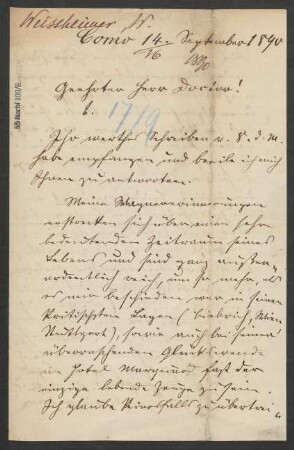 Weissheimer, W.
Como 14. September 1890
/16 1890
Geehrter Herr Doctor!
6.
17/9
Ihr werthes Schreiben v. 8. d. M.
habe empfangen und beeile ich mich
Ihnen zu antworten.
Meine Wagnererinnerungen
erstrecken sich über einen sehr
bedeutenden Zeitraum seines
Lebens und sind ganz außer-
ordentlich reich, um so mehr als
es mir beschieden war in seinen
kritischsten Lagen (Biebrich, Wien
Stuttgart), sowie auch bei seiner
überraschenden Glückswende
im Hotel Marquard fast der
einzige lebende Zeuge zu sein.
Ich glaube keinesfalls zu übertrei-
55 Nachl 100/B